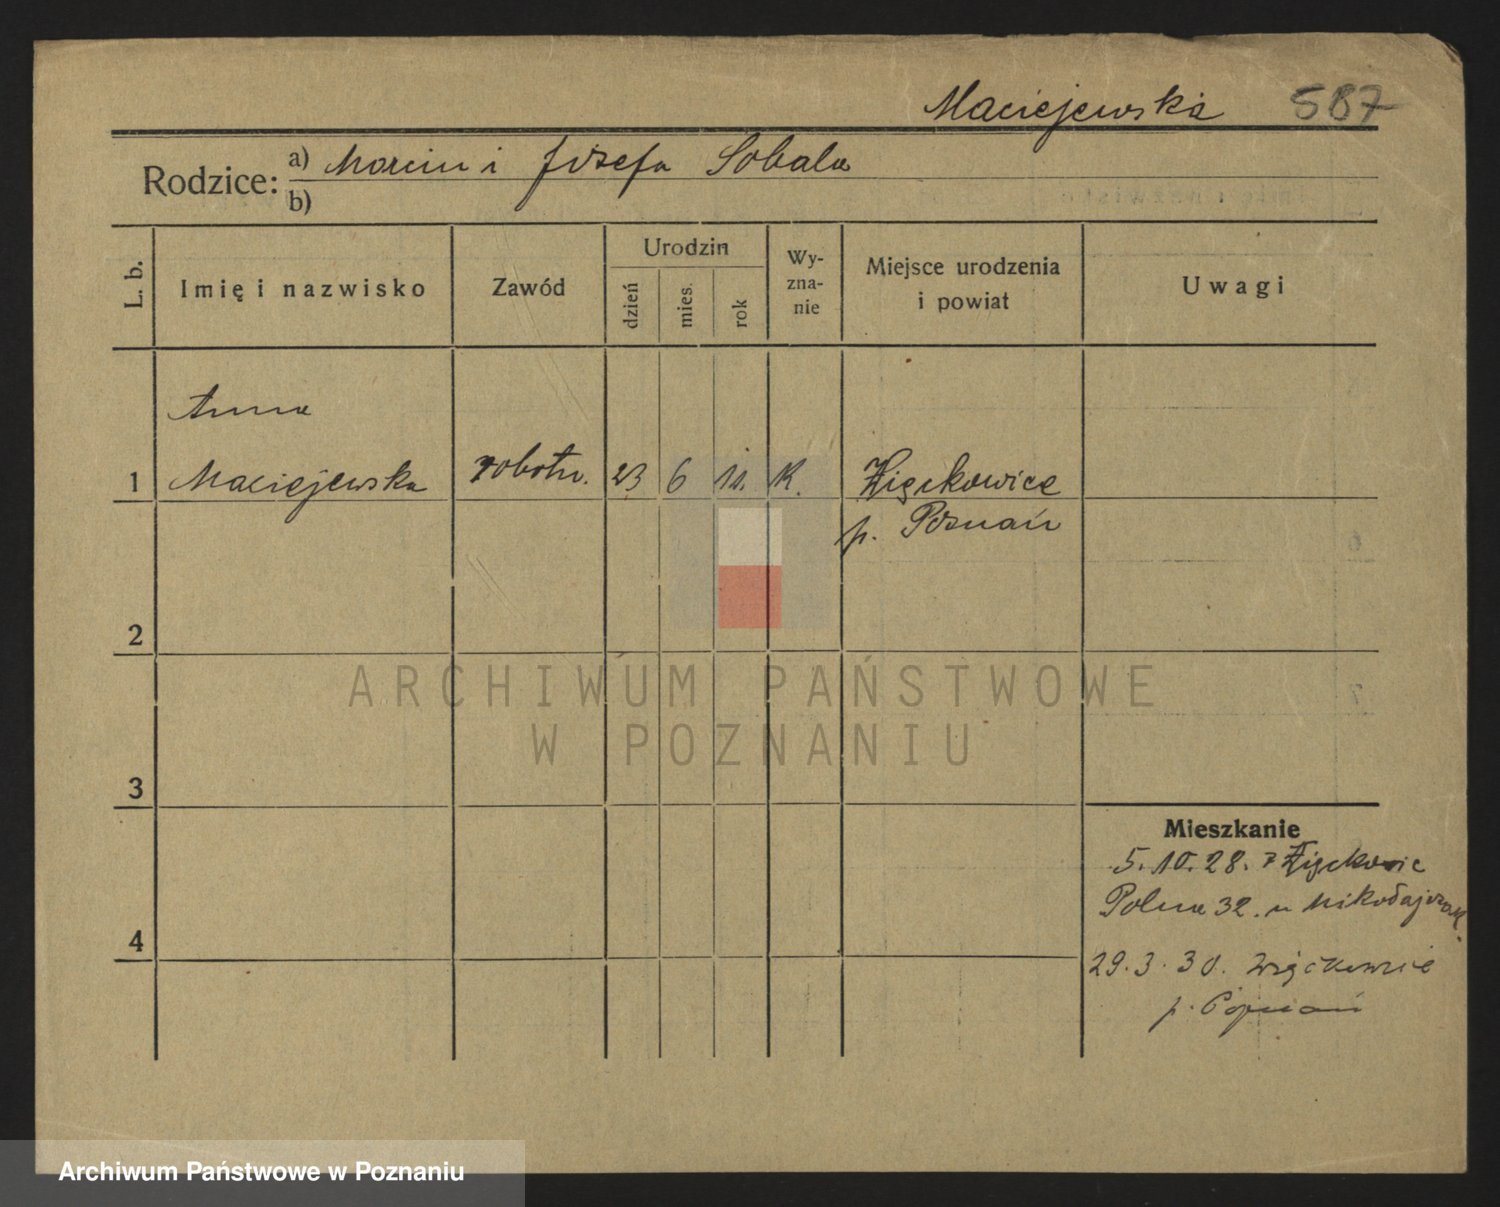 Maciejewska 587
Rodzice: a) Marcin i Józefa Sobala
b)
L. b.
Imię i nazwisko
Zawód
Urodzin
dzień
mies.
rok
Wy-
zna-
nie
Miejsce urodzenia
i powiat
Uwagi
Anna
1 Maciejewska robotn. 23 6 11. K. Więckowice
p. Poznań
2
ARCHIWUM PAŃSTWOWE
W POZNANIU
3
Mieszkanie
5.10.28. z Więckowic
Polna 32. u Mikołajczak.
4
29.3.30. Więckowice
p. Poznań
Archiwum Państwowe w Poznaniu